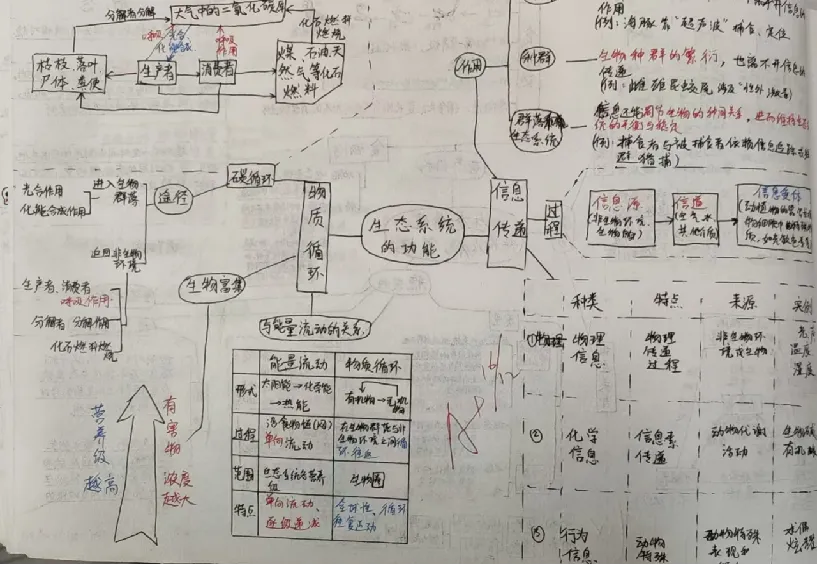 分解者分解
大气中的二氧化碳库
化石燃料
燃烧
呼吸
作用
枯枝落叶
尸体、粪便
生产者
消费者
煤、石油、天
然气等化石
燃料
碳循环
光合作用
化能合成作用
进入生物
群落
途径
返回非生物
环境
生产者、消费者
呼吸作用
分解者 分解作用
化石燃料燃
烧
生物富集
物质循环
生态系统
的功能
与能量流动的关系
能量流动
物质循环
形式
太阳能→化学能
→热能
有机物
无机物
过程
沿食物链(网)
单向流动
在生物群落与非
生物环境之间循
环往返
范围
生态系统各营养
级
生物圈
特点
单向流动、
逐级递减
全球性、循环
往复运动
营养级
越高
有害物
浓度
越大
作用
作用
例:海豚靠"超声波"捕食、定位
种群
生物种群的繁衍,也离不开信息的
传递
群落
生态系统
信息还能调节生物的种间关系,进而维持生态系
统的平衡与稳定
信息
传递
过程
信息源
(非生物环境、
信道
(空气、水
其他介质)
信息受体
种类
特点
来源
实例
①物理
物理
信息
物理
传递
过程
非生物环
境或生物
光
温度
湿度
②
化学
信息
信息素
传递
动物代谢
活动
生物碱
有机酸
③
行为
信息
动物
特殊
动物特殊
表现
求偶
炫耀
A